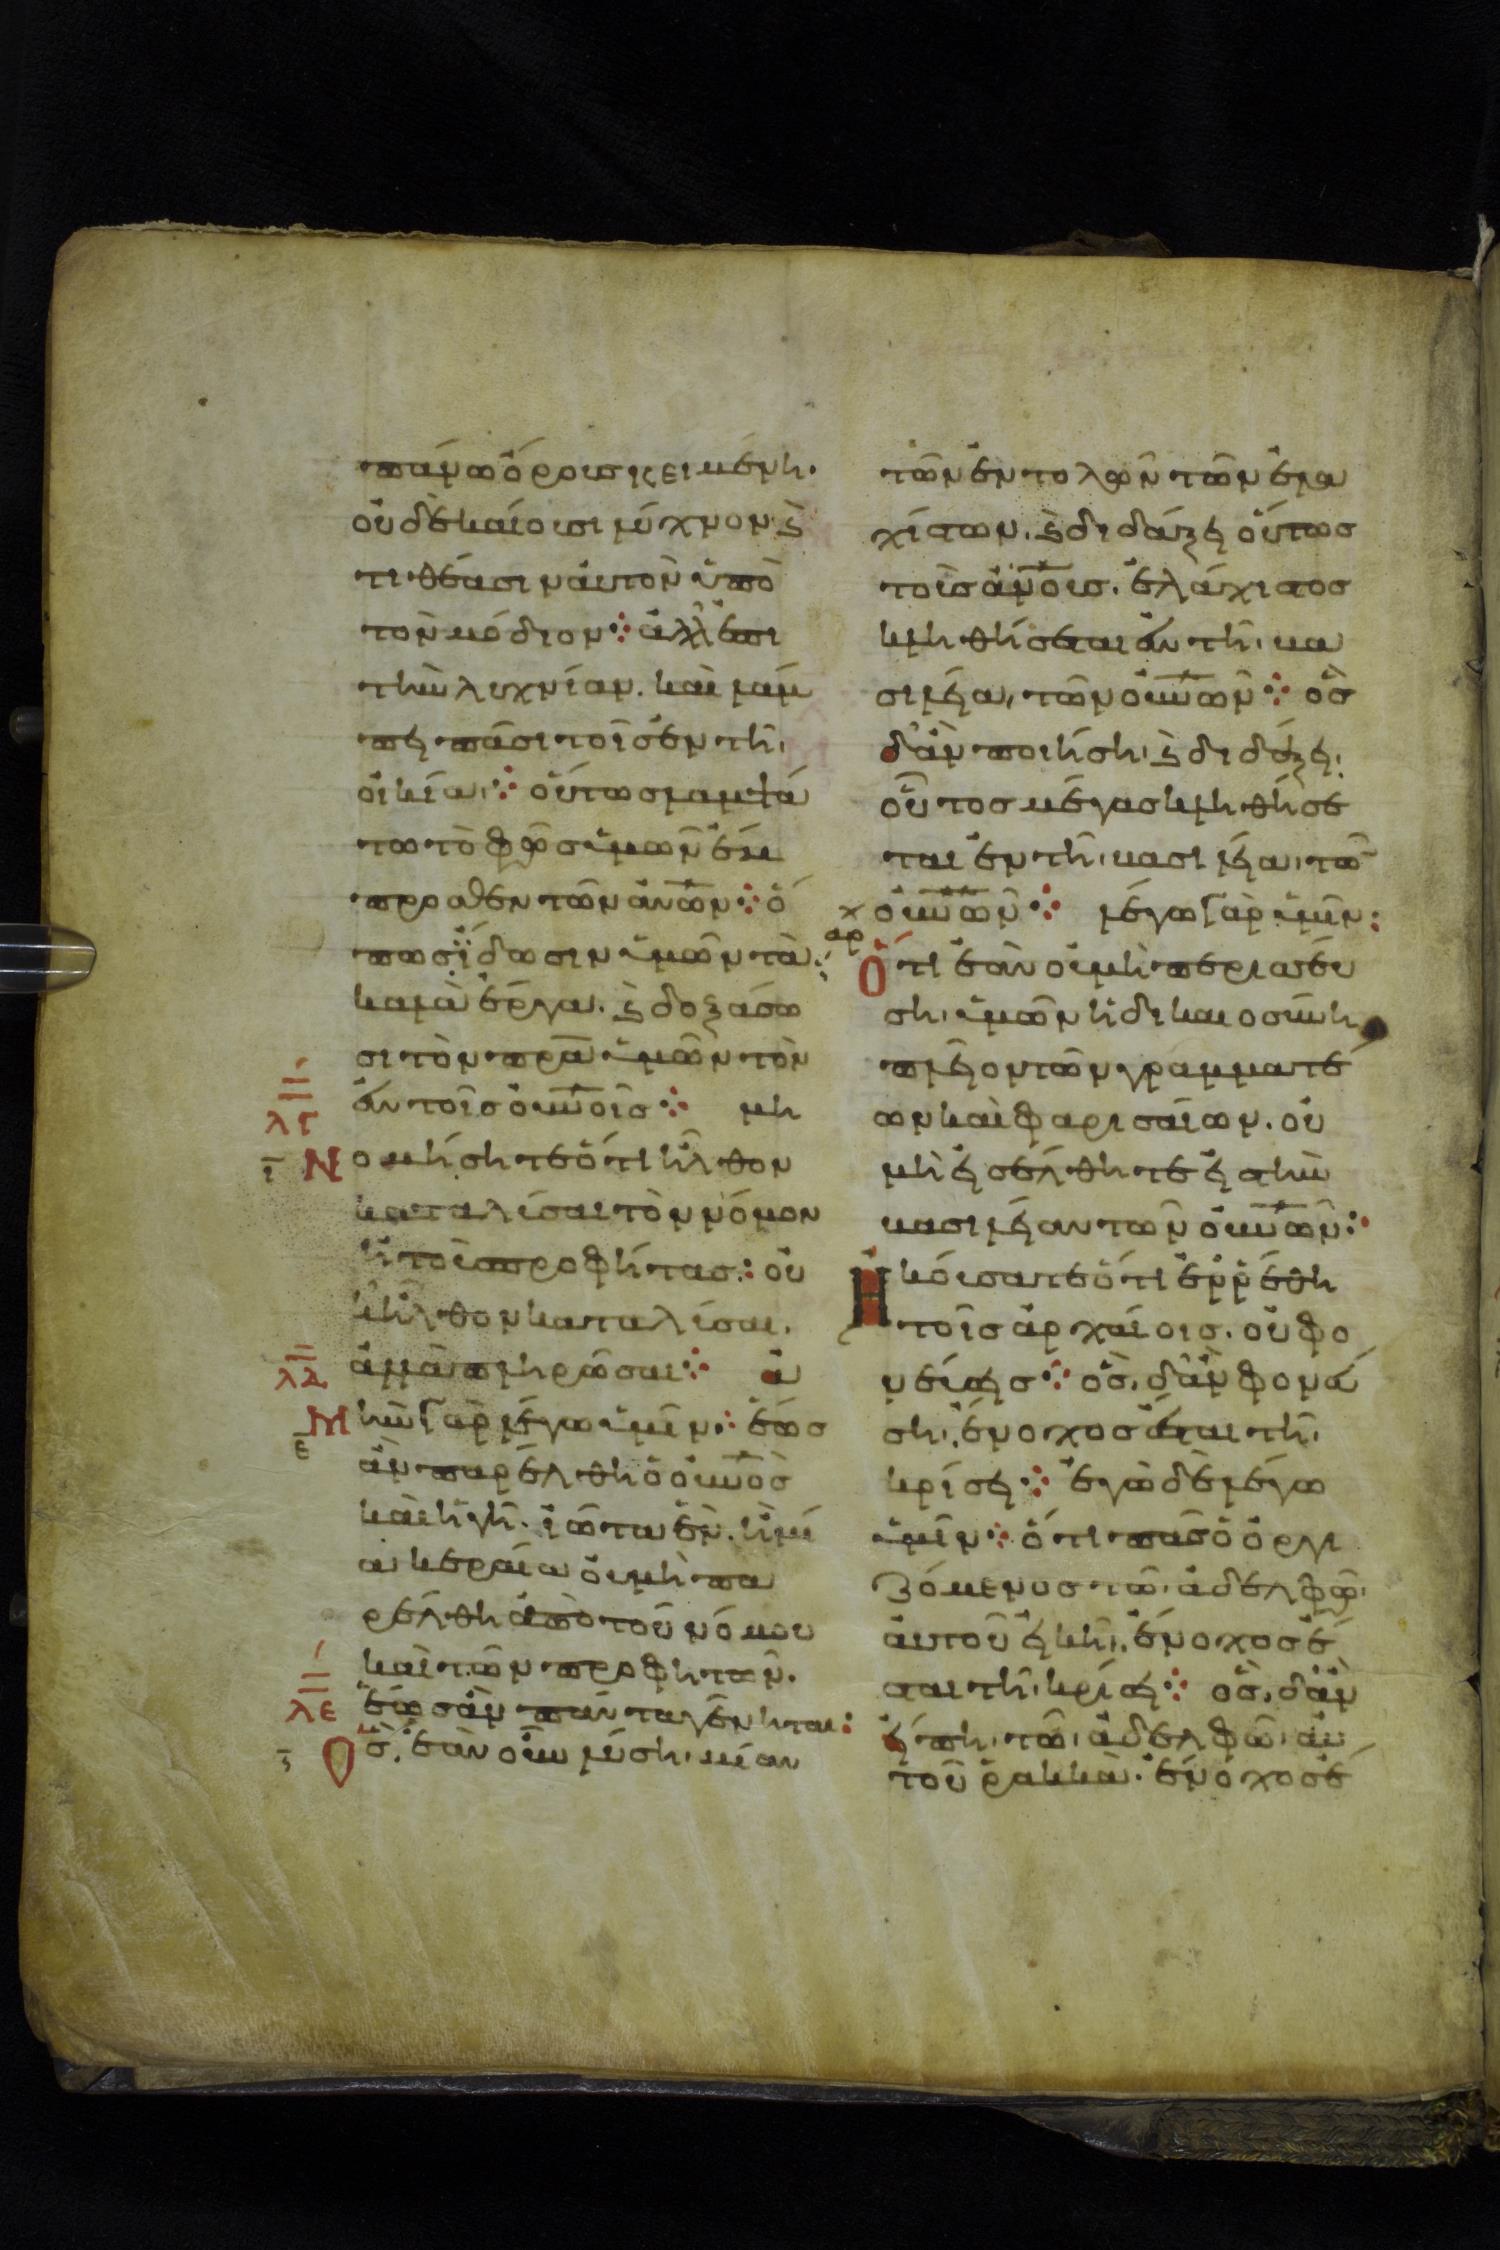 πάνω ὄρουσ κειμένη·
οὐδὲ καίουσι λύχνον ϗ
τιθέασιν αὐτὸν ὑπὸ
τὸν μόδιον ⁘ ἀλλ' ἐπι
τὴν λυχνίαν. καὶ λάμ
πει πᾶσι τοῖσ ἐν τῆ
οἰκία ⁘ οὕτωσ λαμψά
τω τὸ φῶσ ὑμῶν ἔμ
προσθεν τῶν ἀν̅ω̅ν ⁘ ὅ
πωσ ἴδωσιν ὑμῶν τὰ
καλὰ ἔργα. ϗ δοξάσω
σι τὸν π̅ρ̅α̅ ὑμῶν τὸν
ἐν τοῖσ οὐν̅ο̅ῖσ ⁘ μὴ
λγ
ι Νομίσητε ὅτι ἦλθον
καταλύσαι τὸν νόμον
ἢ τοὺσ προφήτασ : οὐ
κ ἦλθον καταλύσαι.
λδ
ἀλλὰ πληρῶσαι ⁘ ἀ
ε Μὴν γὰρ λέγω ὑμῖν ⁘ ἕωσ
ἂν παρέλθη ὁ οὐν̅ὸ̅σ
καὶ ἡ γῆ. ἰῶτα ἓν. ἢ μί
α κεραία οὐ μὴ πα
ρέλθη ἀπὸ τοῦ νόμου
καὶ τῶν προφητῶν.
λε
ἕωσ ἂν πάντα γένηται :
ς Ὃσ ἐὰν οὖν λύση μίαν
τῶν ἐντολῶν τῶν ἐλα
χίστων. ϗ διδάξει οὕτωσ
τοὺσ ἀν̅ο̅υσ. ἐλάχιστοσ
κληθήσεται ἐν τῆ βα
σιλεία τῶν οὐν̅ῶ̅ν ⁘ ὃσ
δ' ἂν ποιήση ϗ διδάξει.
οὗτοσ μέγασ κληθήσε
ται ἐν τῆ βασιλεία τῶ
οὐν̅ῶ̅ν ⁘ λέγω γὰρ ὑμῖν :
αρχ
Ὅτι ἐὰν οὐ μὴ περισσεύ
ση ὑμῶν ἡ δικαιοσύνη
πλεῖον τῶν γραμματέ
ων καὶ φαρισαίων. οὐ
μὴ εἰσέλθητε εἰσ τὴν
βασιλείαν τῶν οὐν̅ῶ̅ν :
Ἠκούσατε ὅτι ἐρρέθη
τοῖσ ἀρχαίοισ. οὐ φο
νεύσεισ ⁘ ὃσ δ' ἂν φονεύ
ση, ἔνοχοσ ἔσται τῆ
κρίσει ⁘ ἐγὼ δὲ λέγω
ὑμῖν ⁘ ὅτι πᾶσ ὁ ὀργι
ζόμενοσ τῶ ἀδελφῶ
αὐτοῦ εἰκῆ, ἔνοχοσ ἔ
σται τῆ κρίσει ⁘ ὃσ δ' ἂν
εἴπη τῶ ἀδελφῶ αὐ
τοῦ ῥακκὰ. ἔνοχοσ ἔ